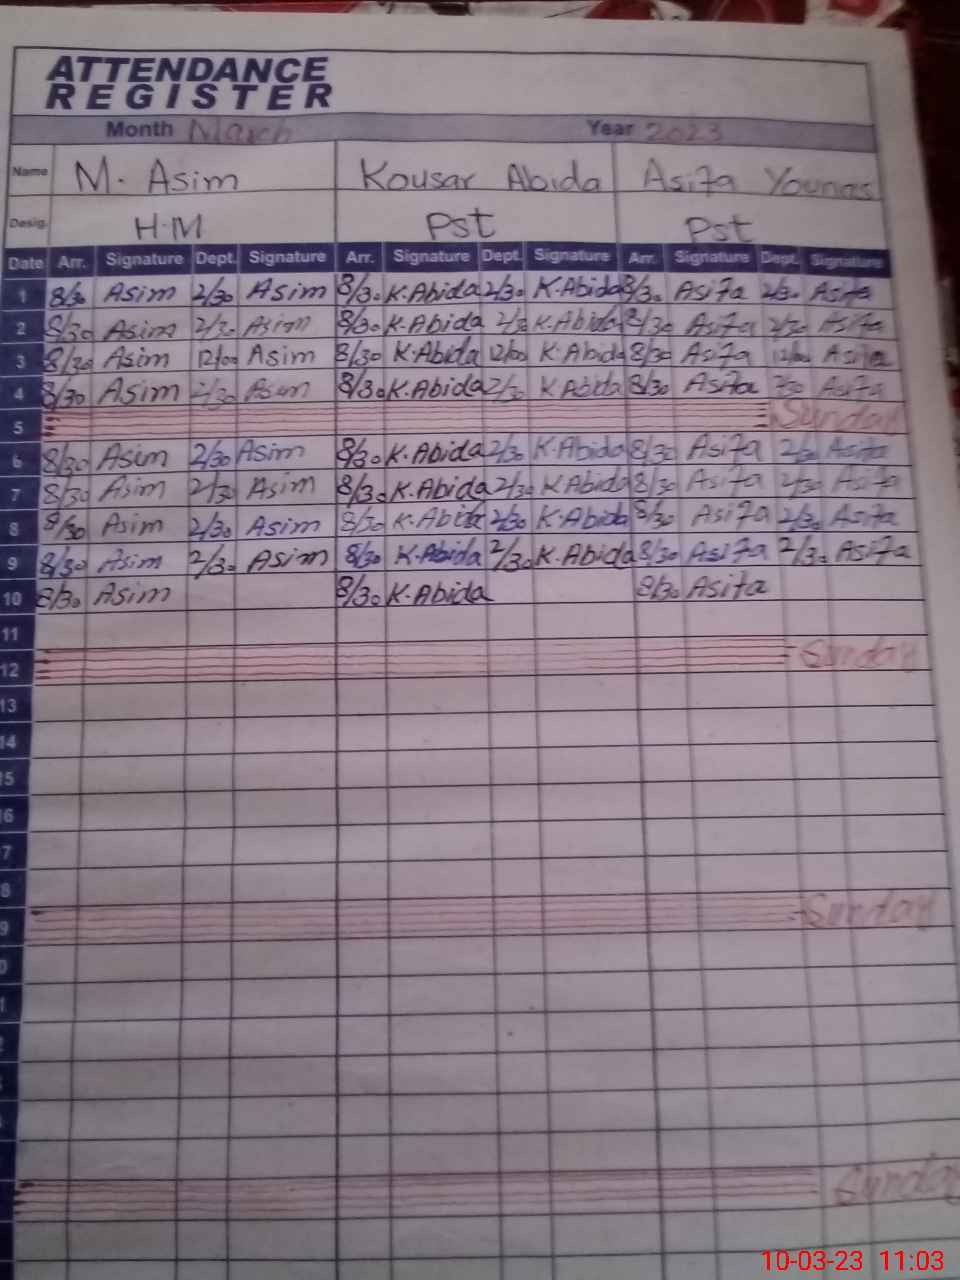 ATTENDANCE
REGISTER
Month March Year 2023
Name M. Asim Kousar Abida Asifa Younas
Desig. H.M Pst Pst
Date Arr. Signature Dept. Signature Arr. Signature Dept. Signature Arr. Signature Dept. Signature
1 8/30 Asim 2/30 Asim 8/30 K.Abida 2/30 K.Abida 8/30 Asifa 2/30 Asifa
2 8/30 Asim 2/30 Asim 8/30 K.Abida 2/30 K.Abida 8/30 Asifa 2/30 Asifa
3 8/30 Asim 12/00 Asim 8/30 K.Abida 12/00 K.Abida 8/30 Asifa 12/00 Asifa
4 8/30 Asim 2/30 Asim 8/30 K.Abida 2/30 K.Abida 8/30 Asifa 2/30 Asifa
5 Sunday
6 8/30 Asim 2/30 Asim 8/30 K.Abida 2/30 K.Abida 8/30 Asifa 2/30 Asifa
7 8/30 Asim 2/30 Asim 8/30 K.Abida 2/30 K.Abida 8/30 Asifa 2/30 Asifa
8 8/30 Asim 2/30 Asim 8/30 K.Abida 2/30 K.Abida 8/30 Asifa 2/30 Asifa
9 8/30 Asim 2/30 Asim 8/30 K.Abida 2/30 K.Abida 8/30 Asifa 2/30 Asifa
10 8/30 Asim 8/30 K.Abida 8/30 Asifa
11
12 Sunday
13
14
5
6
7
8
9 Sunday
0
1
2
Sunday
10-03-23 11:03